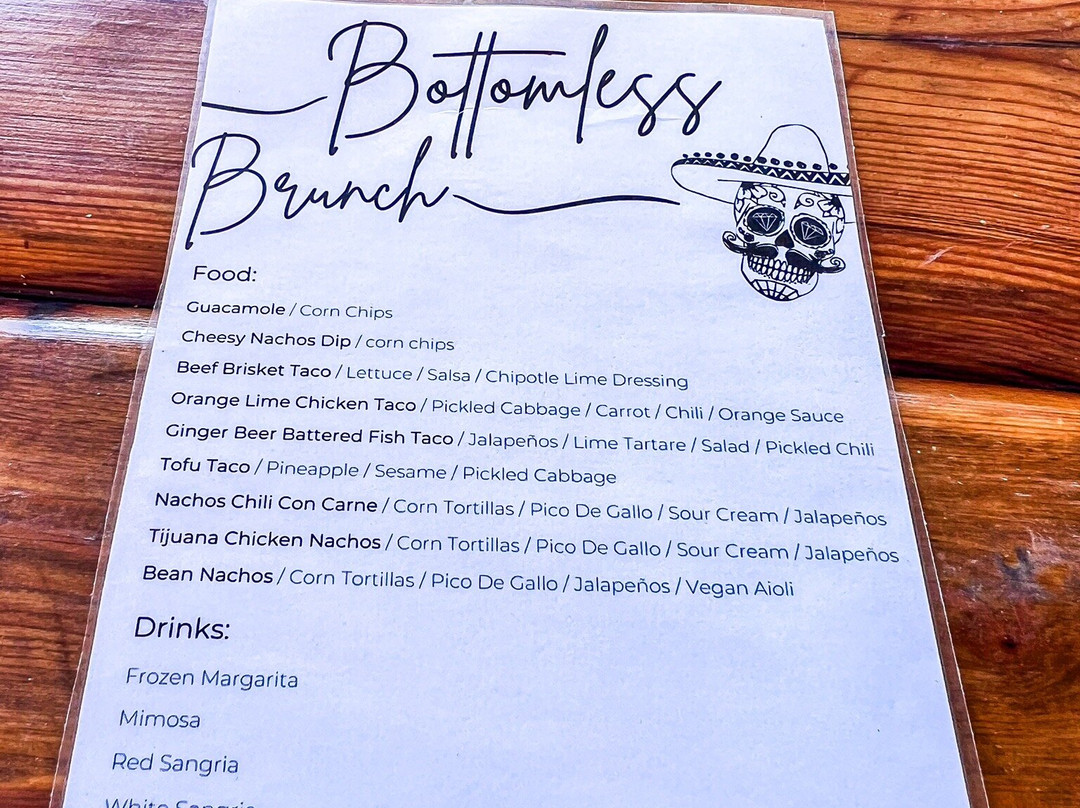 Bottomless
Brunch
Food:
Guacamole / Corn Chips
Cheesy Nachos Dip / corn chips
Beef Brisket Taco / Lettuce / Salsa / Chipotle Lime Dressing
Orange Lime Chicken Taco / Pickled Cabbage / Carrot / Chili / Orange Sauce
Ginger Beer Battered Fish Taco / Jalapeños / Lime Tartare / Salad / Pickled Chili
Tofu Taco / Pineapple / Sesame / Pickled Cabbage
Nachos Chili Con Carne / Corn Tortillas / Pico De Gallo / Sour Cream / Jalapeños
Tijuana Chicken Nachos / Corn Tortillas / Pico De Gallo / Sour Cream / Jalapeños
Bean Nachos / Corn Tortillas / Pico De Gallo / Jalapeños / Vegan Aioli
Drinks:
Frozen Margarita
Mimosa
Red Sangria
White Sangria